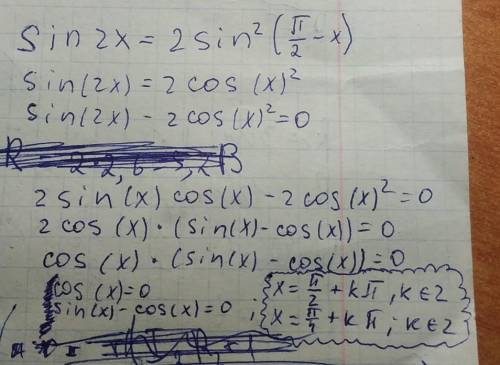 Sin 2x = 2 sin² (π/2 - x)
sin(2x) = 2 cos (x)²
sin(2x) - 2 cos(x)² = 0
2 sin(x) cos(x) - 2 cos(x)² = 0
2 cos (x) · (sin(x) - cos(x)) = 0
cos (x) · (sin(x) - cos(x)) = 0
cos (x) = 0
sin(x) - cos(x) = 0 ;
x = π/2 + kπ, k ∈ Z
x = π/4 + kπ; k ∈ Z